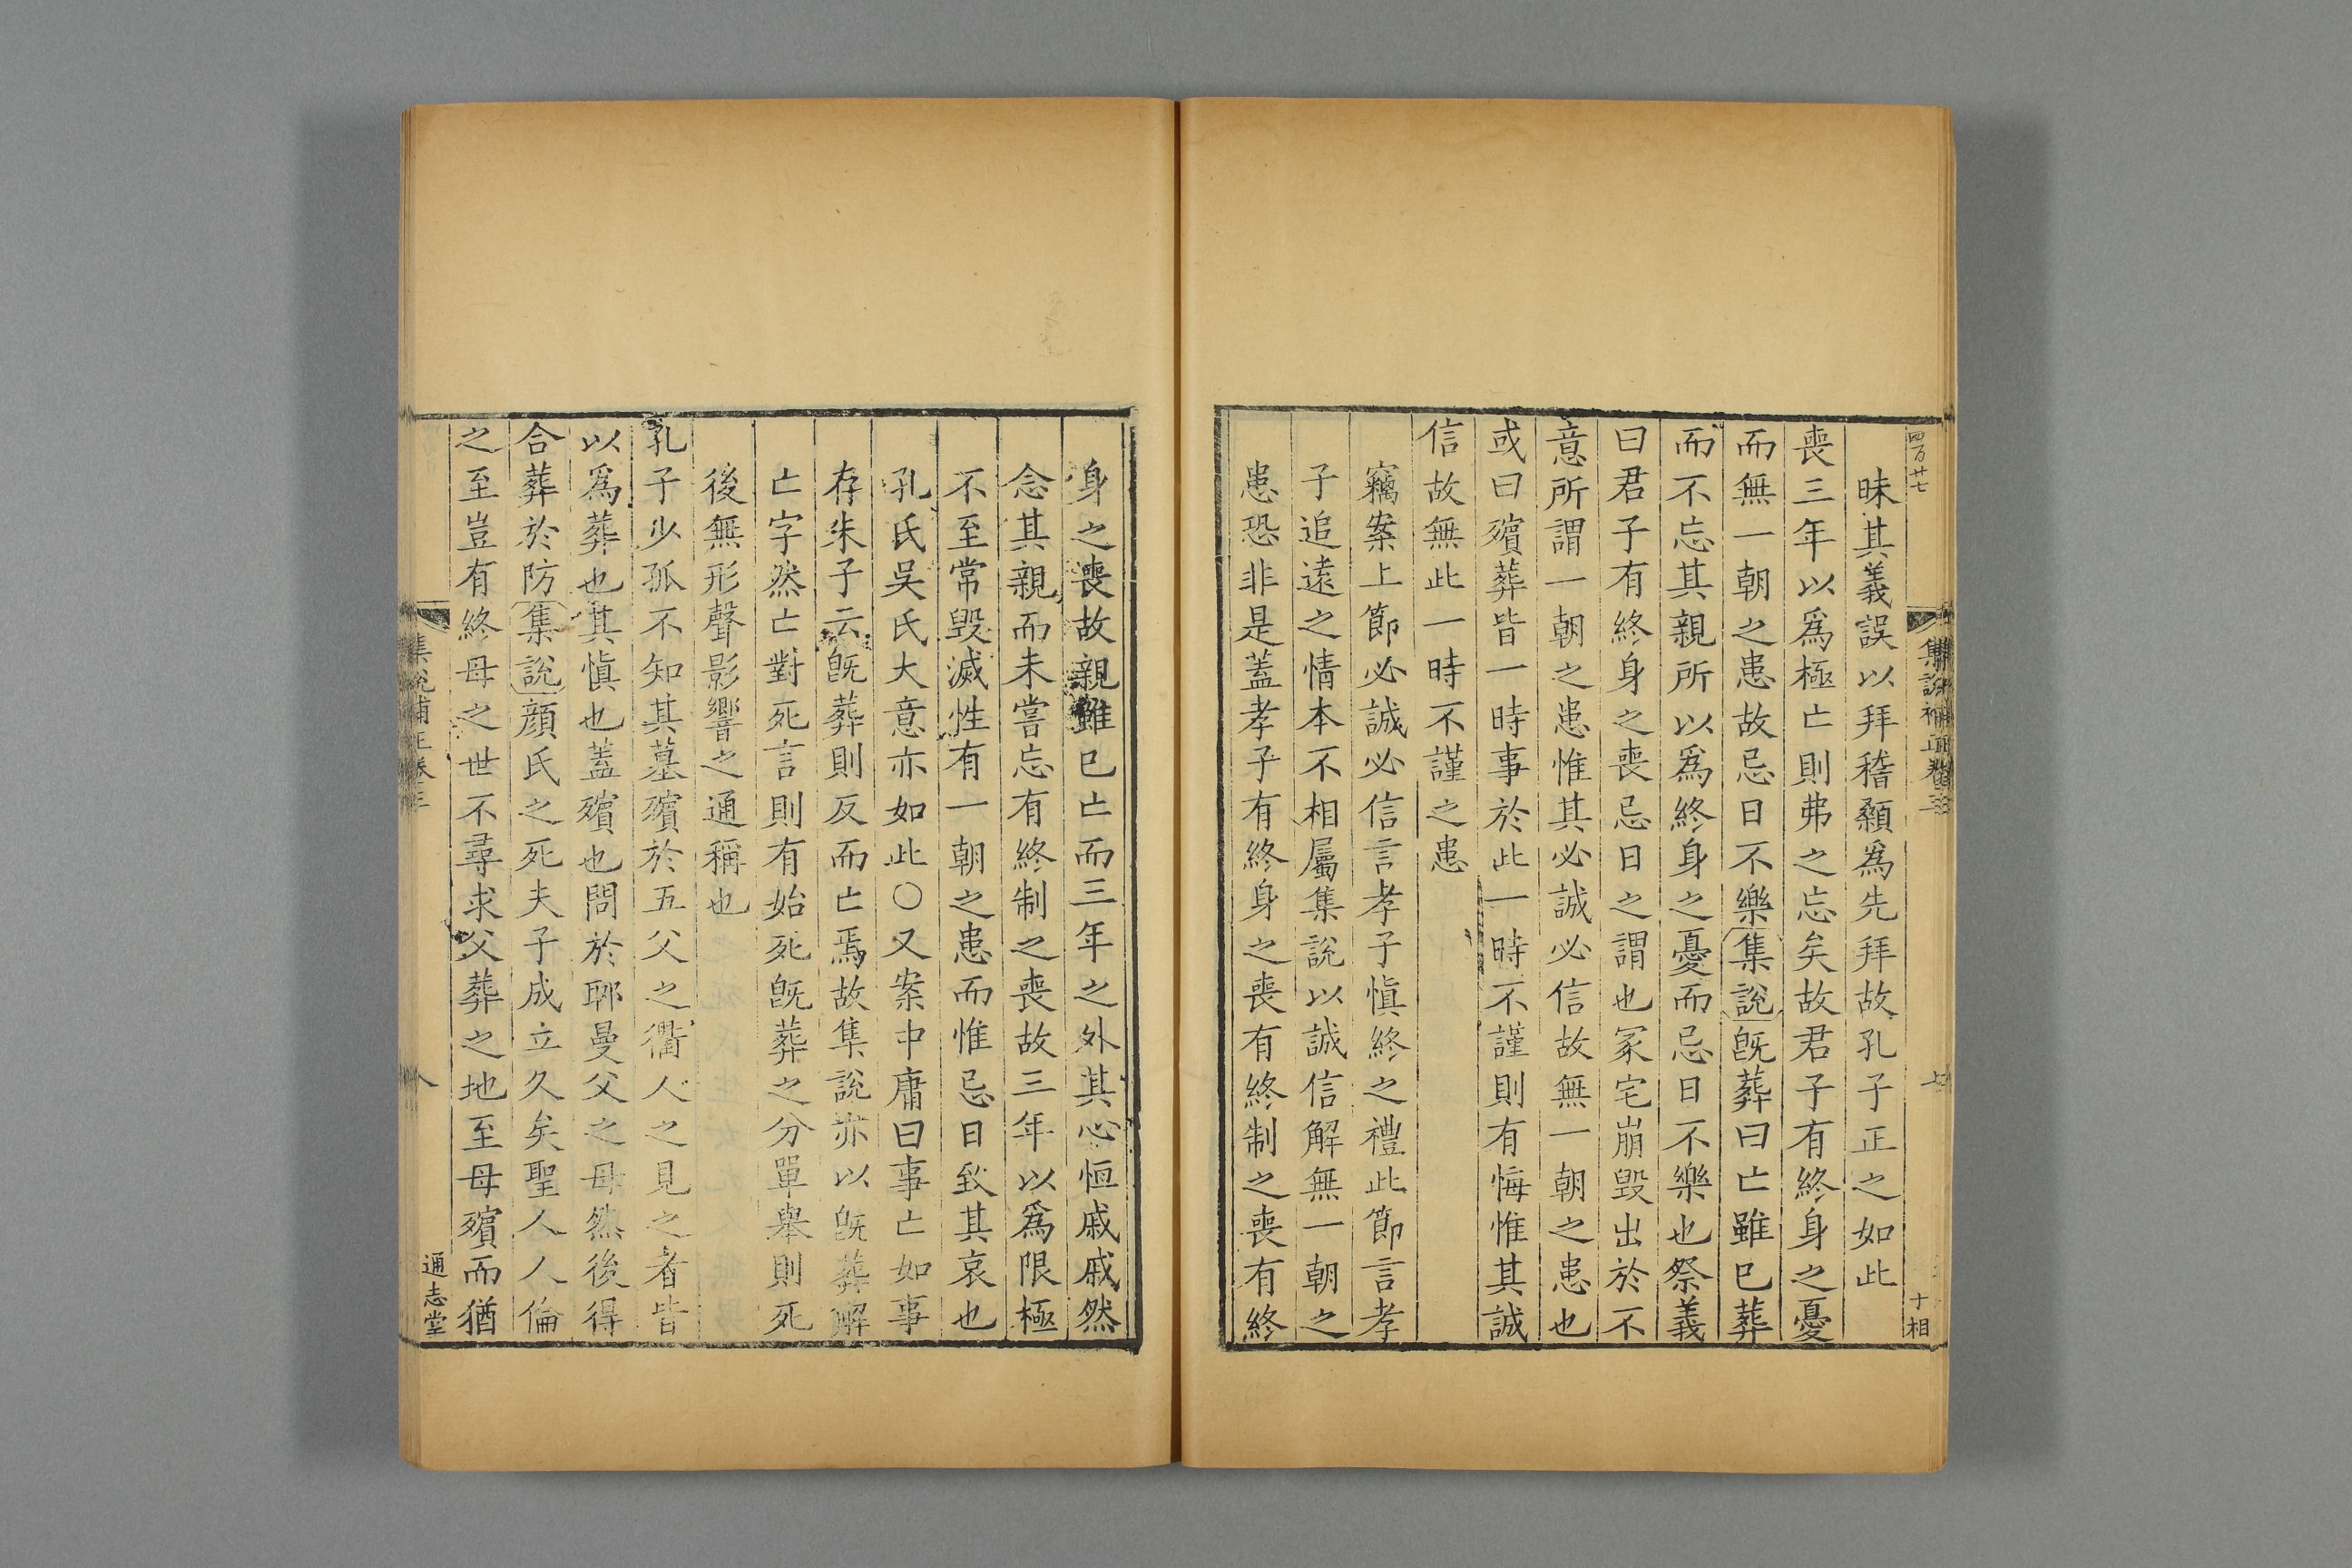 四百廿七
集說補正卷三
七
十相
昧其義誤以拜稽顙爲先拜故孔子正之如此
喪三年以爲極亡則弗之忘矣故君子有終身之憂
而無一朝之患故忌日不樂集說旣葬曰亡雖已葬
而不忘其親所以爲終身之憂而忌日不樂也祭義
曰君子有終身之喪忌日之謂也冢宅崩毀出於不
意所謂一朝之患惟其必誠必信故無一朝之患也
或曰殯葬皆一時事於此一時不謹則有悔惟其誠
信故無此一時不謹之患
竊案上節必誠必信言孝子愼終之禮此節言孝
子追遠之情本不相屬集說以誠信解無一朝之
患恐非是蓋孝子有終身之喪有終制之喪有終
身之喪故親雖已亡而三年之外其心恒戚戚然
念其親而未嘗忘有終制之喪故三年以爲限極
不至常毀滅性有一朝之患而惟忌日致其哀也
孔氏吳氏大意亦如此○又案中庸曰事亡如事
存朱子云旣葬則反而亡焉故集說亦以旣葬解
亡字然亡對死言則有始死旣葬之分單舉則死
後無形聲影響之通稱也
孔子少孤不知其墓殯於五父之衢人之見之者皆
以爲葬也其愼也蓋殯也問於郰曼父之母然後得
合葬於防集說顏氏之死夫子成立久矣聖人人倫
之至豈有終母之世不尋求父葬之地至母殯而猶
集說補正卷三
八
通志堂